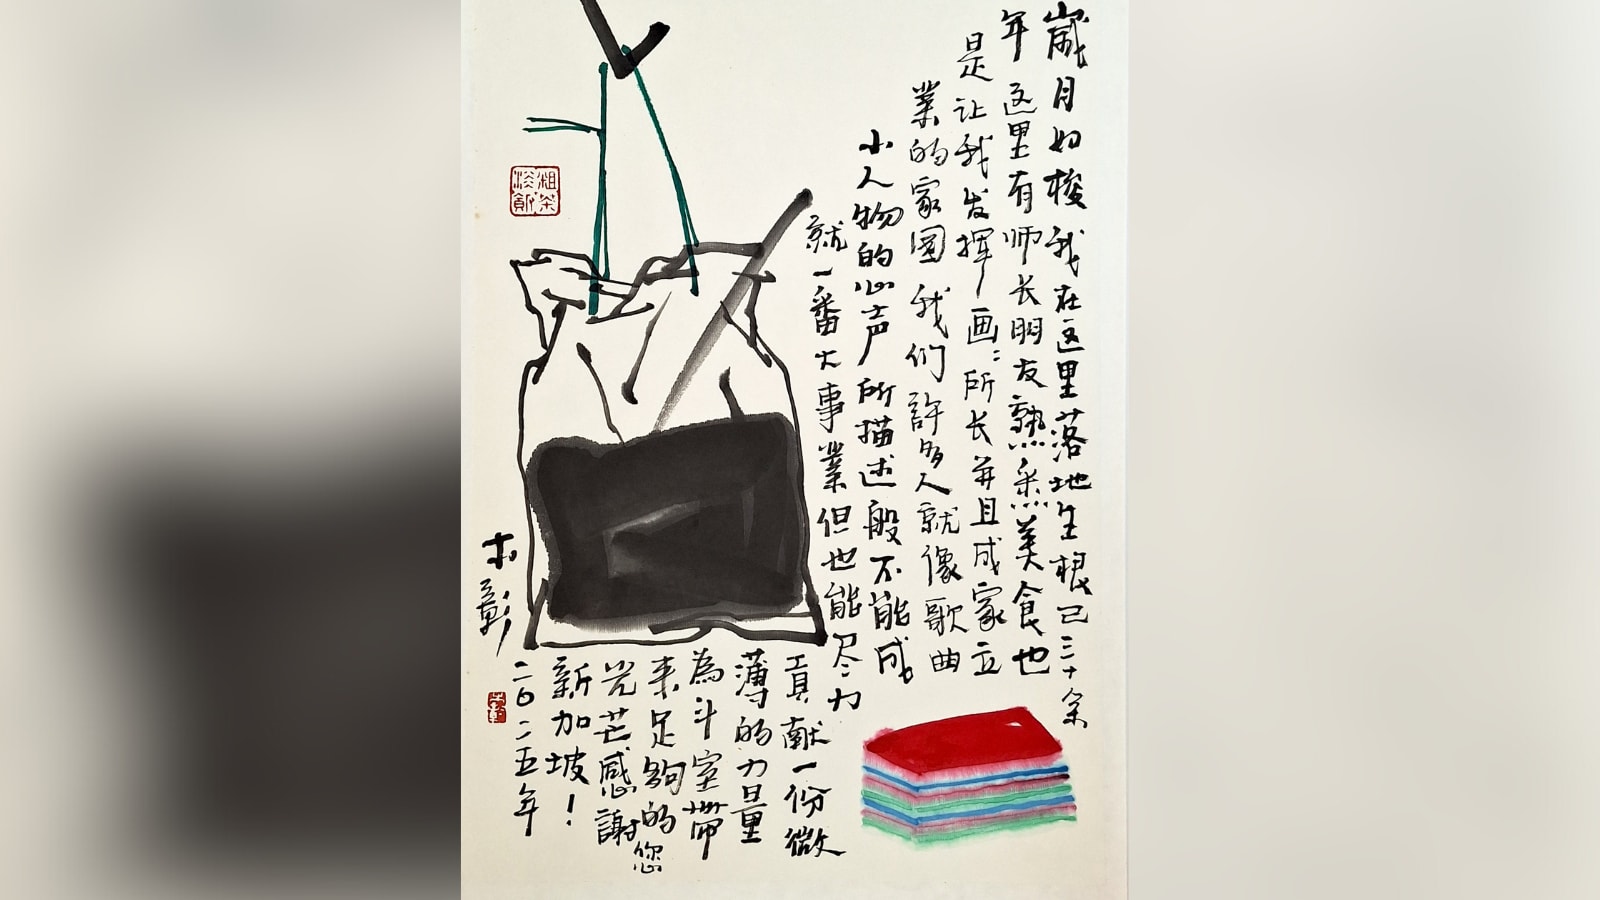 歲月如梭我在这里落地生根已三十余
年这里有师长朋友熟悉美食也
是让我发挥画：所长并且成家立
業的家園我们許多人就像歌曲
小人物的心声所描述般不能成
就一番大事業但也能尽力
貢献一份微
薄的力量
為斗室带
来足夠的
光芒感謝您
新加坡！
二〇二五年
木彰
粗茶淡飯